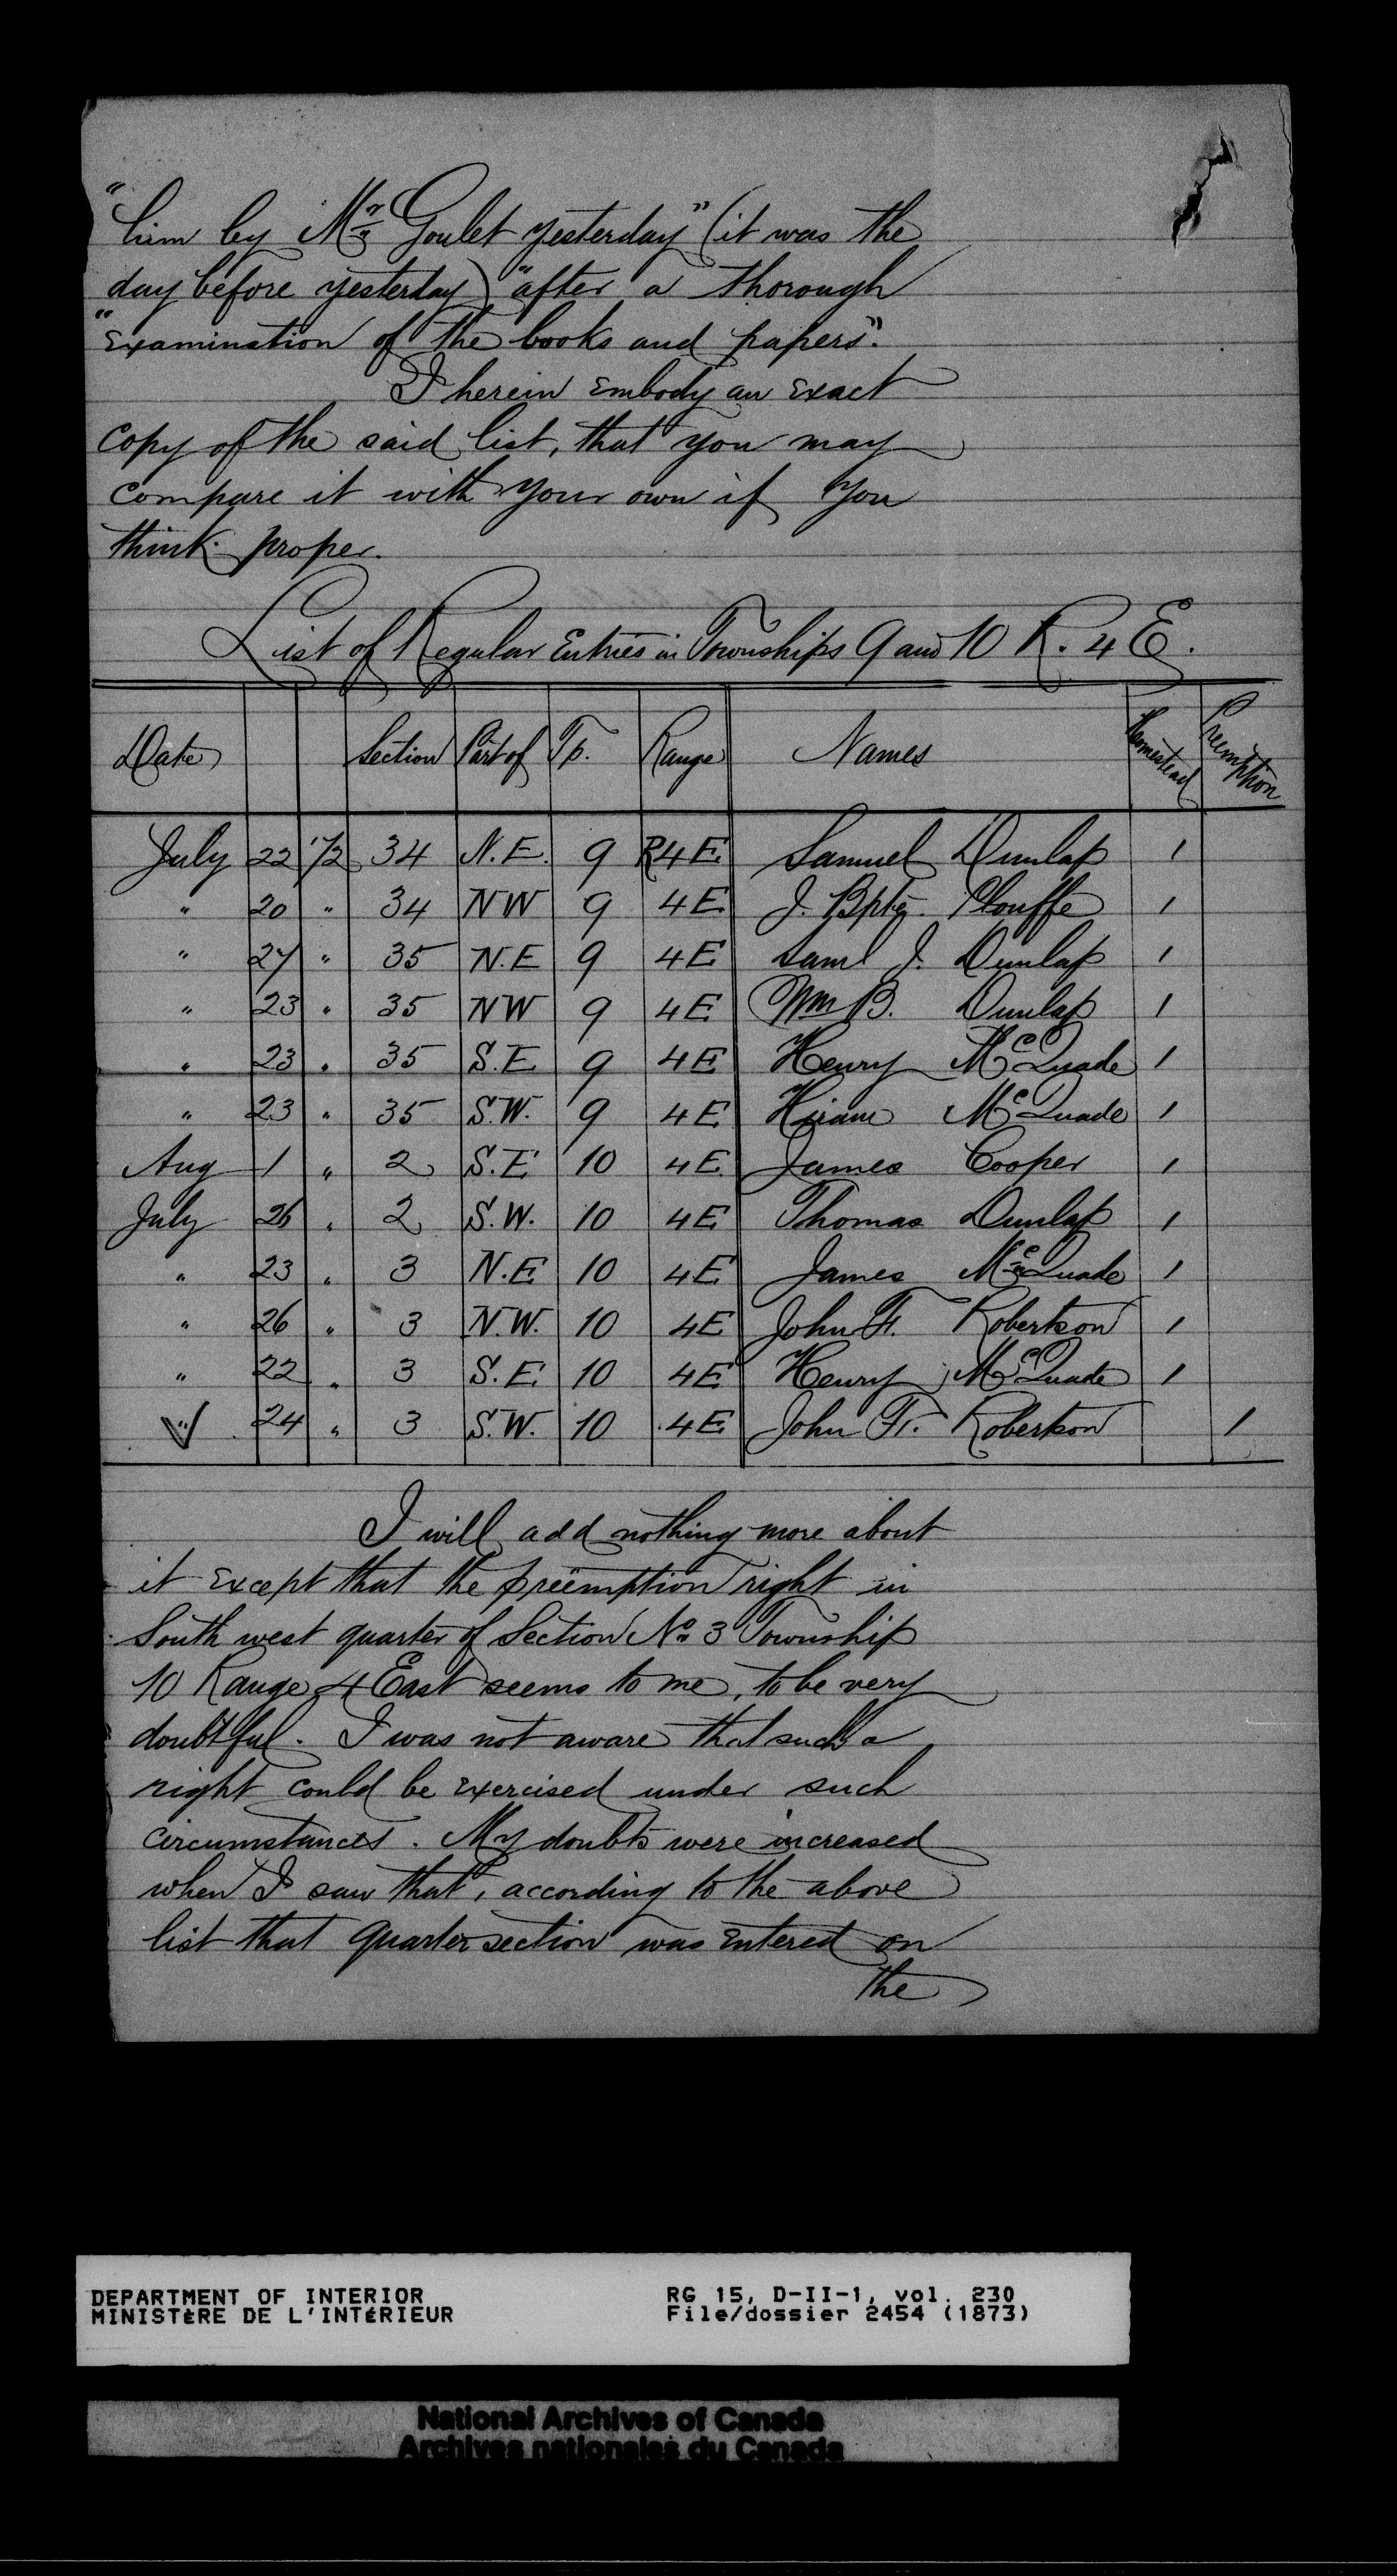 "him by Mr. Goulet yesterday" (it was the
day before yesterday) "after a thorough
"Examination of the books and papers".
I herein Embody an Exact
copy of the said list, that you may
compare it with your own if you
think proper.
List of Regular Entries in Townships 9 and 10 R. 4 E.
Date Section Part of Tp. Range Names Homestead Preemption
July 22 '72 34 N.E. 9 R4E. Samuel Dunlap 1
" 20 " 34 NW 9 4E J. Bpte. Plouffe 1
" 27 " 35 N.E 9 4E Saml J. Dunlap 1
" 23 " 35 NW 9 4E Wm B. Dunlap 1
" 23 " 35 S.E 9 4E Henry McQuade 1
" 23 " 35 S.W. 9 4E Hiram McQuade 1
Aug 1 " 2 S.E 10 4E. James Cooper 1
July 26 " 2 S.W. 10 4E Thomas Dunlap 1
" 23 " 3 N.E 10 4E James McQuade 1
" 26 " 3 N.W. 10 4E John Fr. Robertson 1
" 22 " 3 S.E. 10 4E Henry McQuade 1
" 24 " 3 S.W. 10 4E John Fr. Robertson 1
I will add nothing more about
it Except that the preëmption right in
South west quarter of Section No. 3 Township
10 Range 4 East seems to me, to be very
doubtful. I was not aware that such a
right could be Exercised under such
circumstances. My doubts were increased
when I saw that, according to the above
list that quarter section was Entered on
the
DEPARTMENT OF INTERIOR
MINISTÈRE DE L'INTÉRIEUR
RG 15, D-II-1, vol. 230
File/dossier 2454 (1873)
National Archives of Canada
Archives nationales du Canada